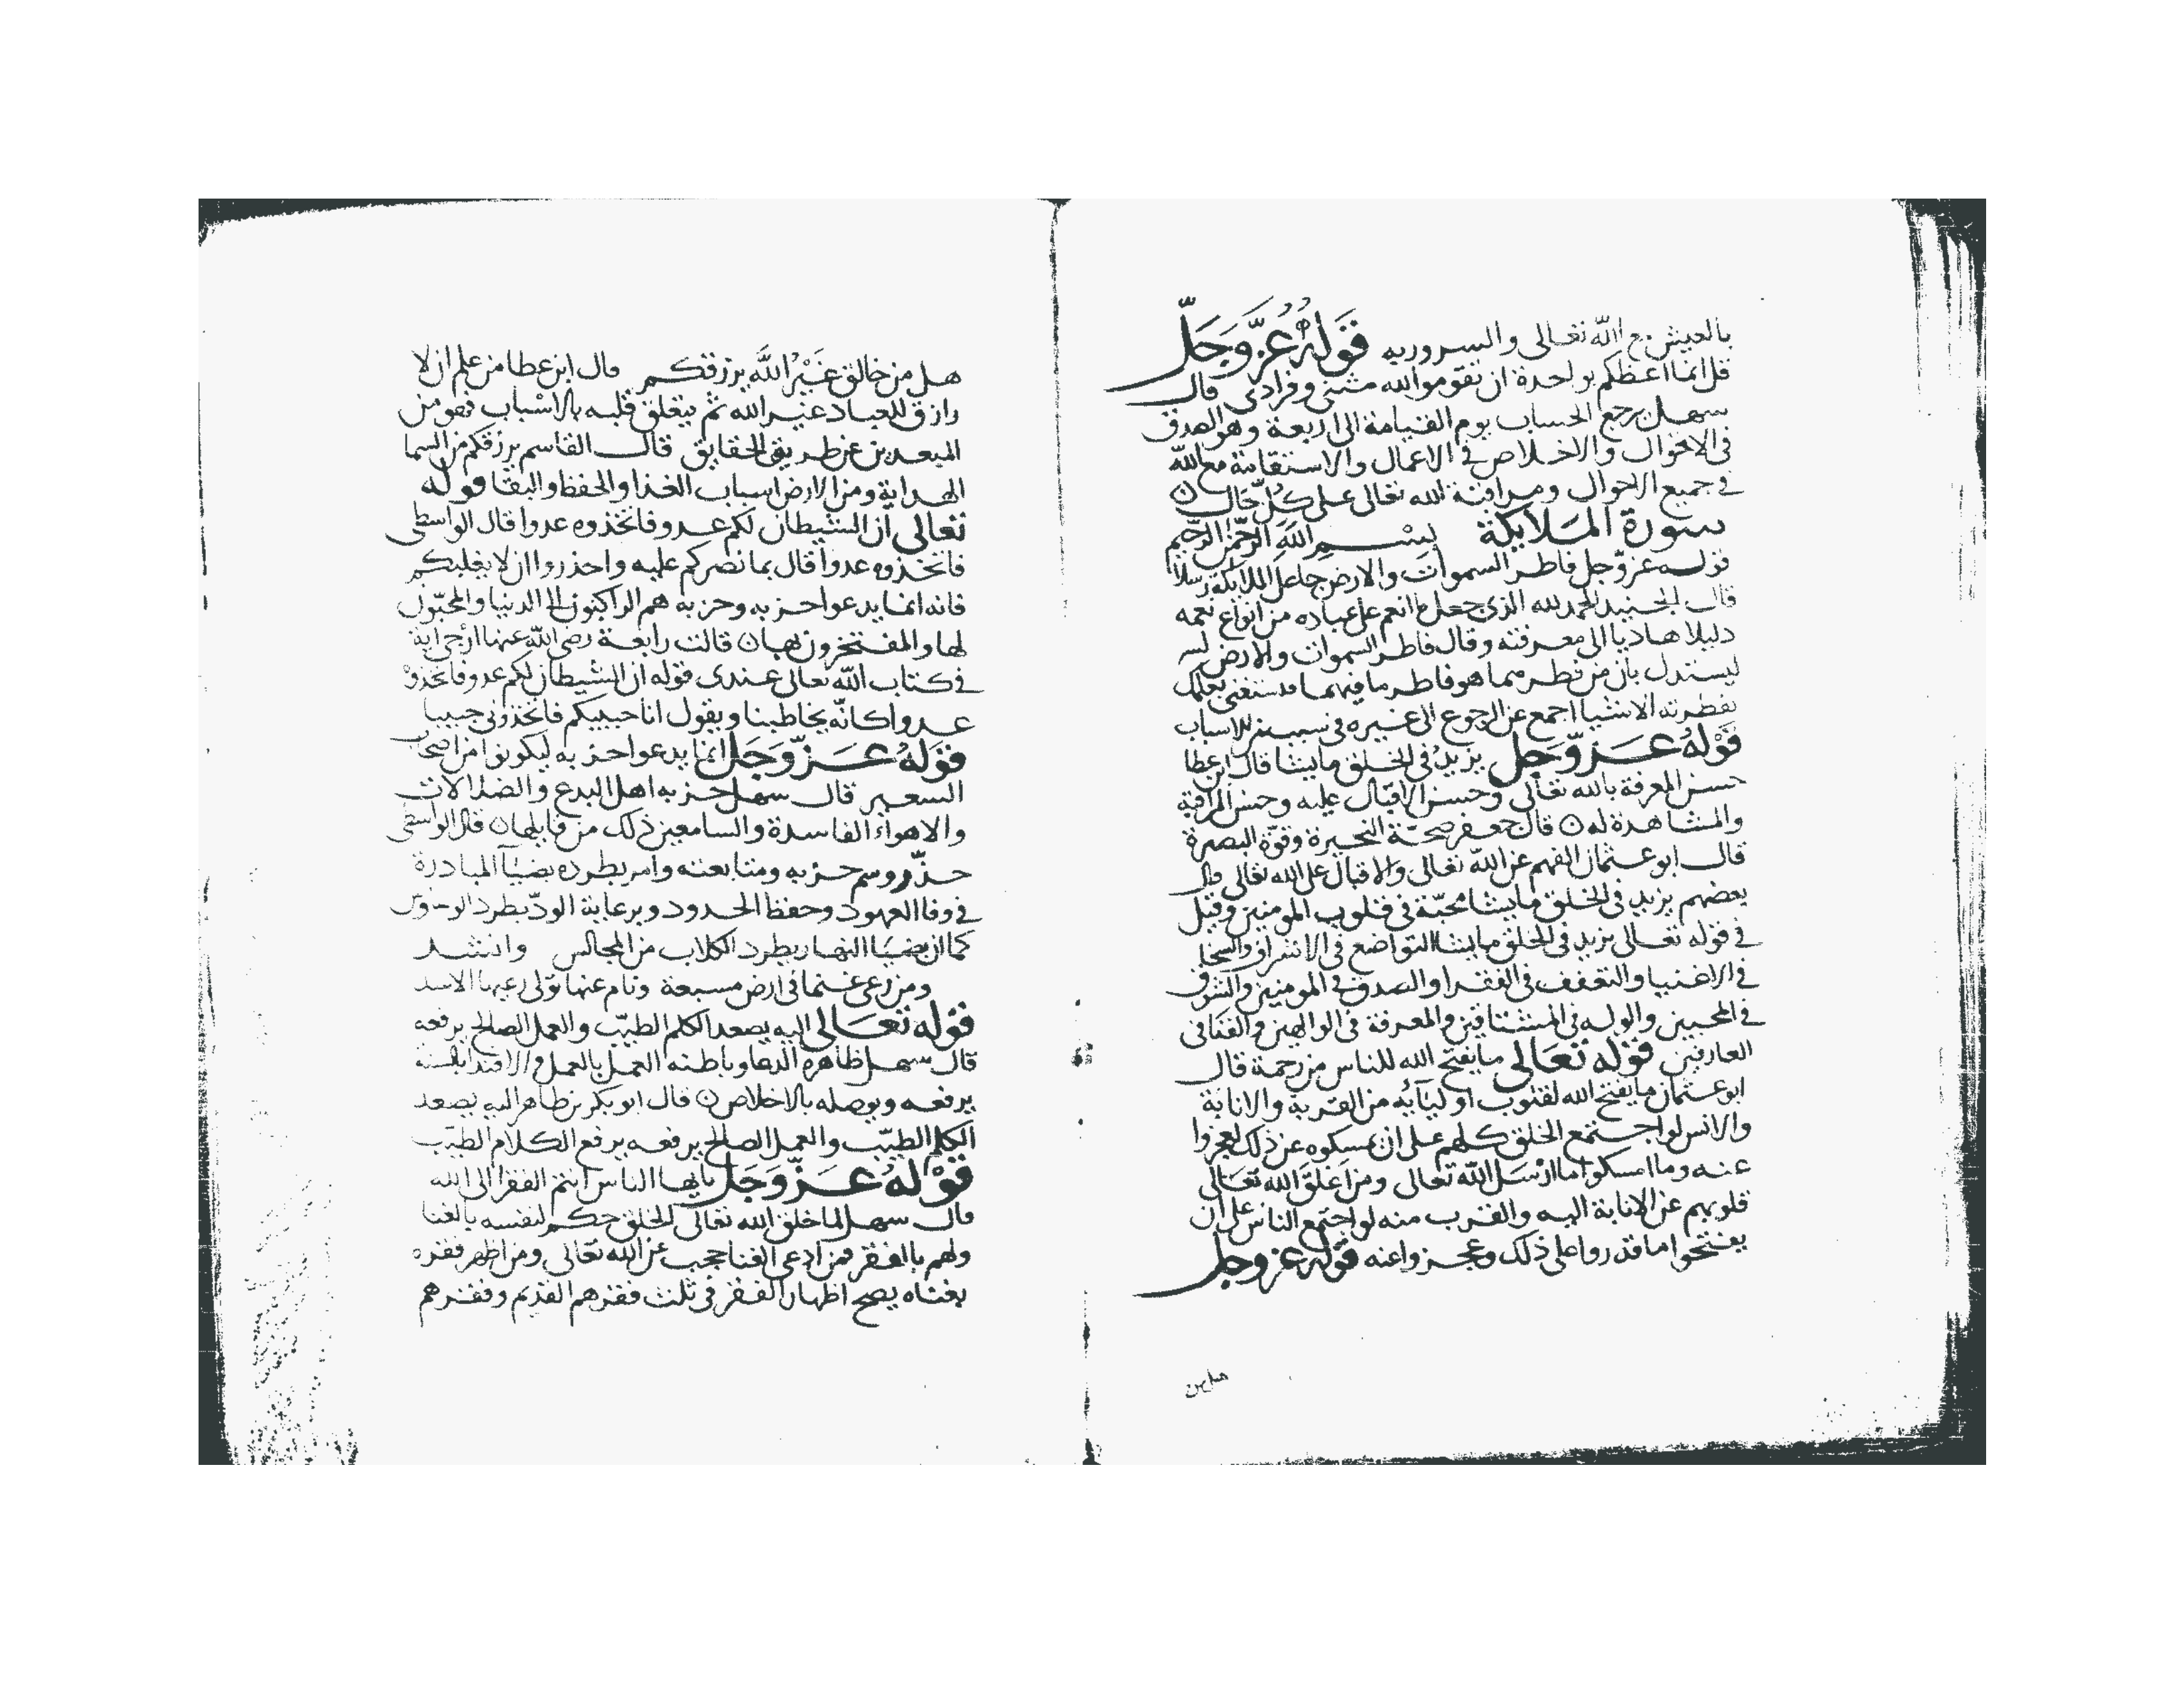 بالعيش مع الله تعالى والسرور به قَوْلُهُ عَزَّ وَجَلَّ
قل انما اعظكم بواحدة ان تقوموا لله مثنى وفرادى قال
سهل يرجع الحساب يوم القيامة الى اربعة وهو الصدق
فى الاحوال والاخلاص فى الاعمال والاستقامة مع الله
فى جميع الاحوال ومراقبة الله تعالى على كل حال ن
سورة الملايكة بسم الله الرحمن الرحيم
قوله عز وجل فاطر السموات والارض جاعل الملايكة رسلا
قال الجنيد الحمد لله الذى جعل ما انعم على عباده من انواع نعمه
دليلا هاديا الى معرفته وقال فاطر السموات والارض
ليستدل بان من فطرهما هو فاطر ما فيهما
بفطرته الاشيا اجمع عن الرجوع الى غيره فى للاسباب
قَوْلُهُ عَزَّ وَجَل يزيد فى الخلق ما يشا قال ابن عطا
حسن المعرفة بالله تعالى وحسن الاقبال عليه وحسن المراقبة
والمشاهدة له ن قال جعفر صحة النحيرة وقوة البصيرة
قال ابو عثمان الفهم عن الله تعالى والاقبال على الله تعالى قال
بعضهم يزيد فى الخلق ما يشا محبّة فى قلوب المومنين وقيل
فى قوله تعالى يزيد فى الخلق ما يشا التواضع فى الاشراف والسخا
فى الاغنيا والتعفف فى الفقرا والصدق فى المومنين والشوق
فى المحبين والوله فى المشتاقين والمعرفة فى الوالهين والفنا فى
العارفين قوله تعالى ما يفتح الله للناس من رحمة قال
ابو عثمان ما يفتح الله لقلوب اوليآيه من القربة والانابة
والانس لو اجتمع الخلق كلهم على ان يمسكوه عن ذلك لعجزوا
عنه وما امسكوا ما ارسل الله تعالى ومن اغلق الله تعالى
قلوبهم عن الانابة اليه والقرب منه لو اجتمع الناس على ان
يفتحوا ما قدروا على ذلك وعجزوا عنه قوله عز وجل
هل من
هل من خالق غَيْرُ اللَّه يرزقكم قال ابن عطا من علم ان لا
رازق للعباد غير الله ثم يتعلق قلبه بالاسباب فهو من
المبعدين عن طريق الحقايق قال القاسم يرزقكم من السما
الهداية ومن الارض اسباب الغذا والحفظ والبقا قوله
تعالى ان الشيطان لكم عدو فاتخذوه عدوا قال الواسطى
فاتخذوه عدوا قال بما نصركم عليه واحذروا ان لا يغلبكم
فانه انما يدعوا حزبه وحزبه هم الراكنون الى الدنيا والمحبّون
لها والمفتخرون بها ن قالت رابعة رضى الله عنها ارجى اية
فى كتاب الله تعالى عندى قوله ان الشيطان لكم عدو فاتخذوه
عدوا كانّه يخاطبنا ويقول انا حبيبكم فاتخذونى حبيبا
قَوْلُهُ عَزَّ وَجَل انما يدعوا حزبه ليكونوا من اصحاب
السعير قال سهل حزبه اهل البدع والضلالات
والاهوآء الفاسدة والسامعين ذلك من قايلها ن قال الواسطى
حذّر وسم حزبه ومتابعته وامر بطرده بضيآ المبادرة
فى وفا العهود وحفظ الحدود وبرعاية الودّ يطرد الوسواس
كما ان بضيآ النهار يطرد الكلاب من المجالس وانشد
ومن رعى غنما فى ارض مسبعة ونام عنها تولى رعيها الاسد
قوله تعالى اليه يصعد الكلم الطيّب والعمل الصالح يرفعه
قال سهل ظاهره الدعا وباطنه العمل بالعمل والاقتدا بالسنة
يرفعه ويوصله بالاخلاص ن قال ابو بكر بن طاهر اليه يصعد
الكلم الطيّب والعمل الصالح يرفعه يرفع الكلام الطيّب
قَوْلُهُ عَزَّ وَجَل يايها الناس انتم الفقرا الى الله
قال سهل لما خلق الله تعالى الخلق حكم لنفسه بالغنا
ولهم بالفقر فمن ادعى الغنا حجب عن الله تعالى ومن اظهر فقره
بغناه يصح اظهار الفقر فى ثلث فقرهم القديم وفقرهم